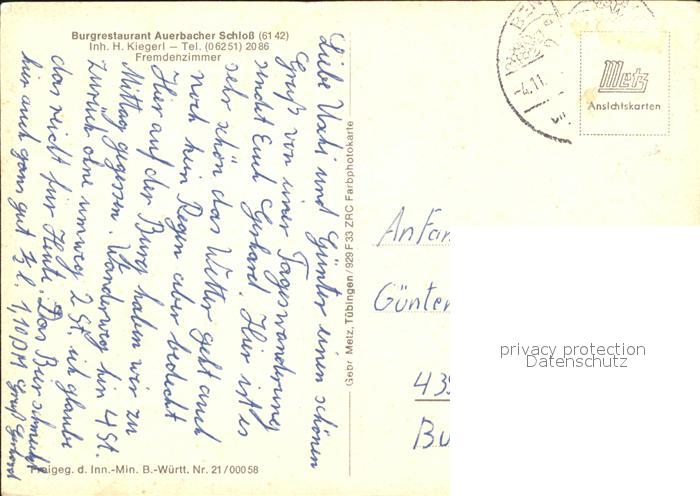 Burgrestaurant Auerbacher Schloß (61 42)
Inh. H. Kiegerl – Tel. (0 62 51) 20 86
Fremdenzimmer
Liebe Uschi und Günter einen schönen
Gruß von einer Tageswanderung
sendet Euch Gerhard. Hier ist es
sehr schön das Wetter geht auch
noch kein Regen aber bedeckt
Hier auf der Burg haben wir zu
Mittag gegessen. Wanderweg hin 4 St.
zurück ohne umweg 2 St. ich glaube
das reicht für Heute. Das Bier schmeckt
hier auch ganz gut ½ l. 1,10 DM Gruß Gerhard
Freigeg. d. Inn.-Min. B.-Württ. Nr. 21/000 58
Gebr. Metz, Tübingen/929 F 33 ZRC Farbphotokarte
BEN
-4.11.
Metz
Ansichtskarten
An Fam
Günter
435
Bu
privacy protection
Datenschutz